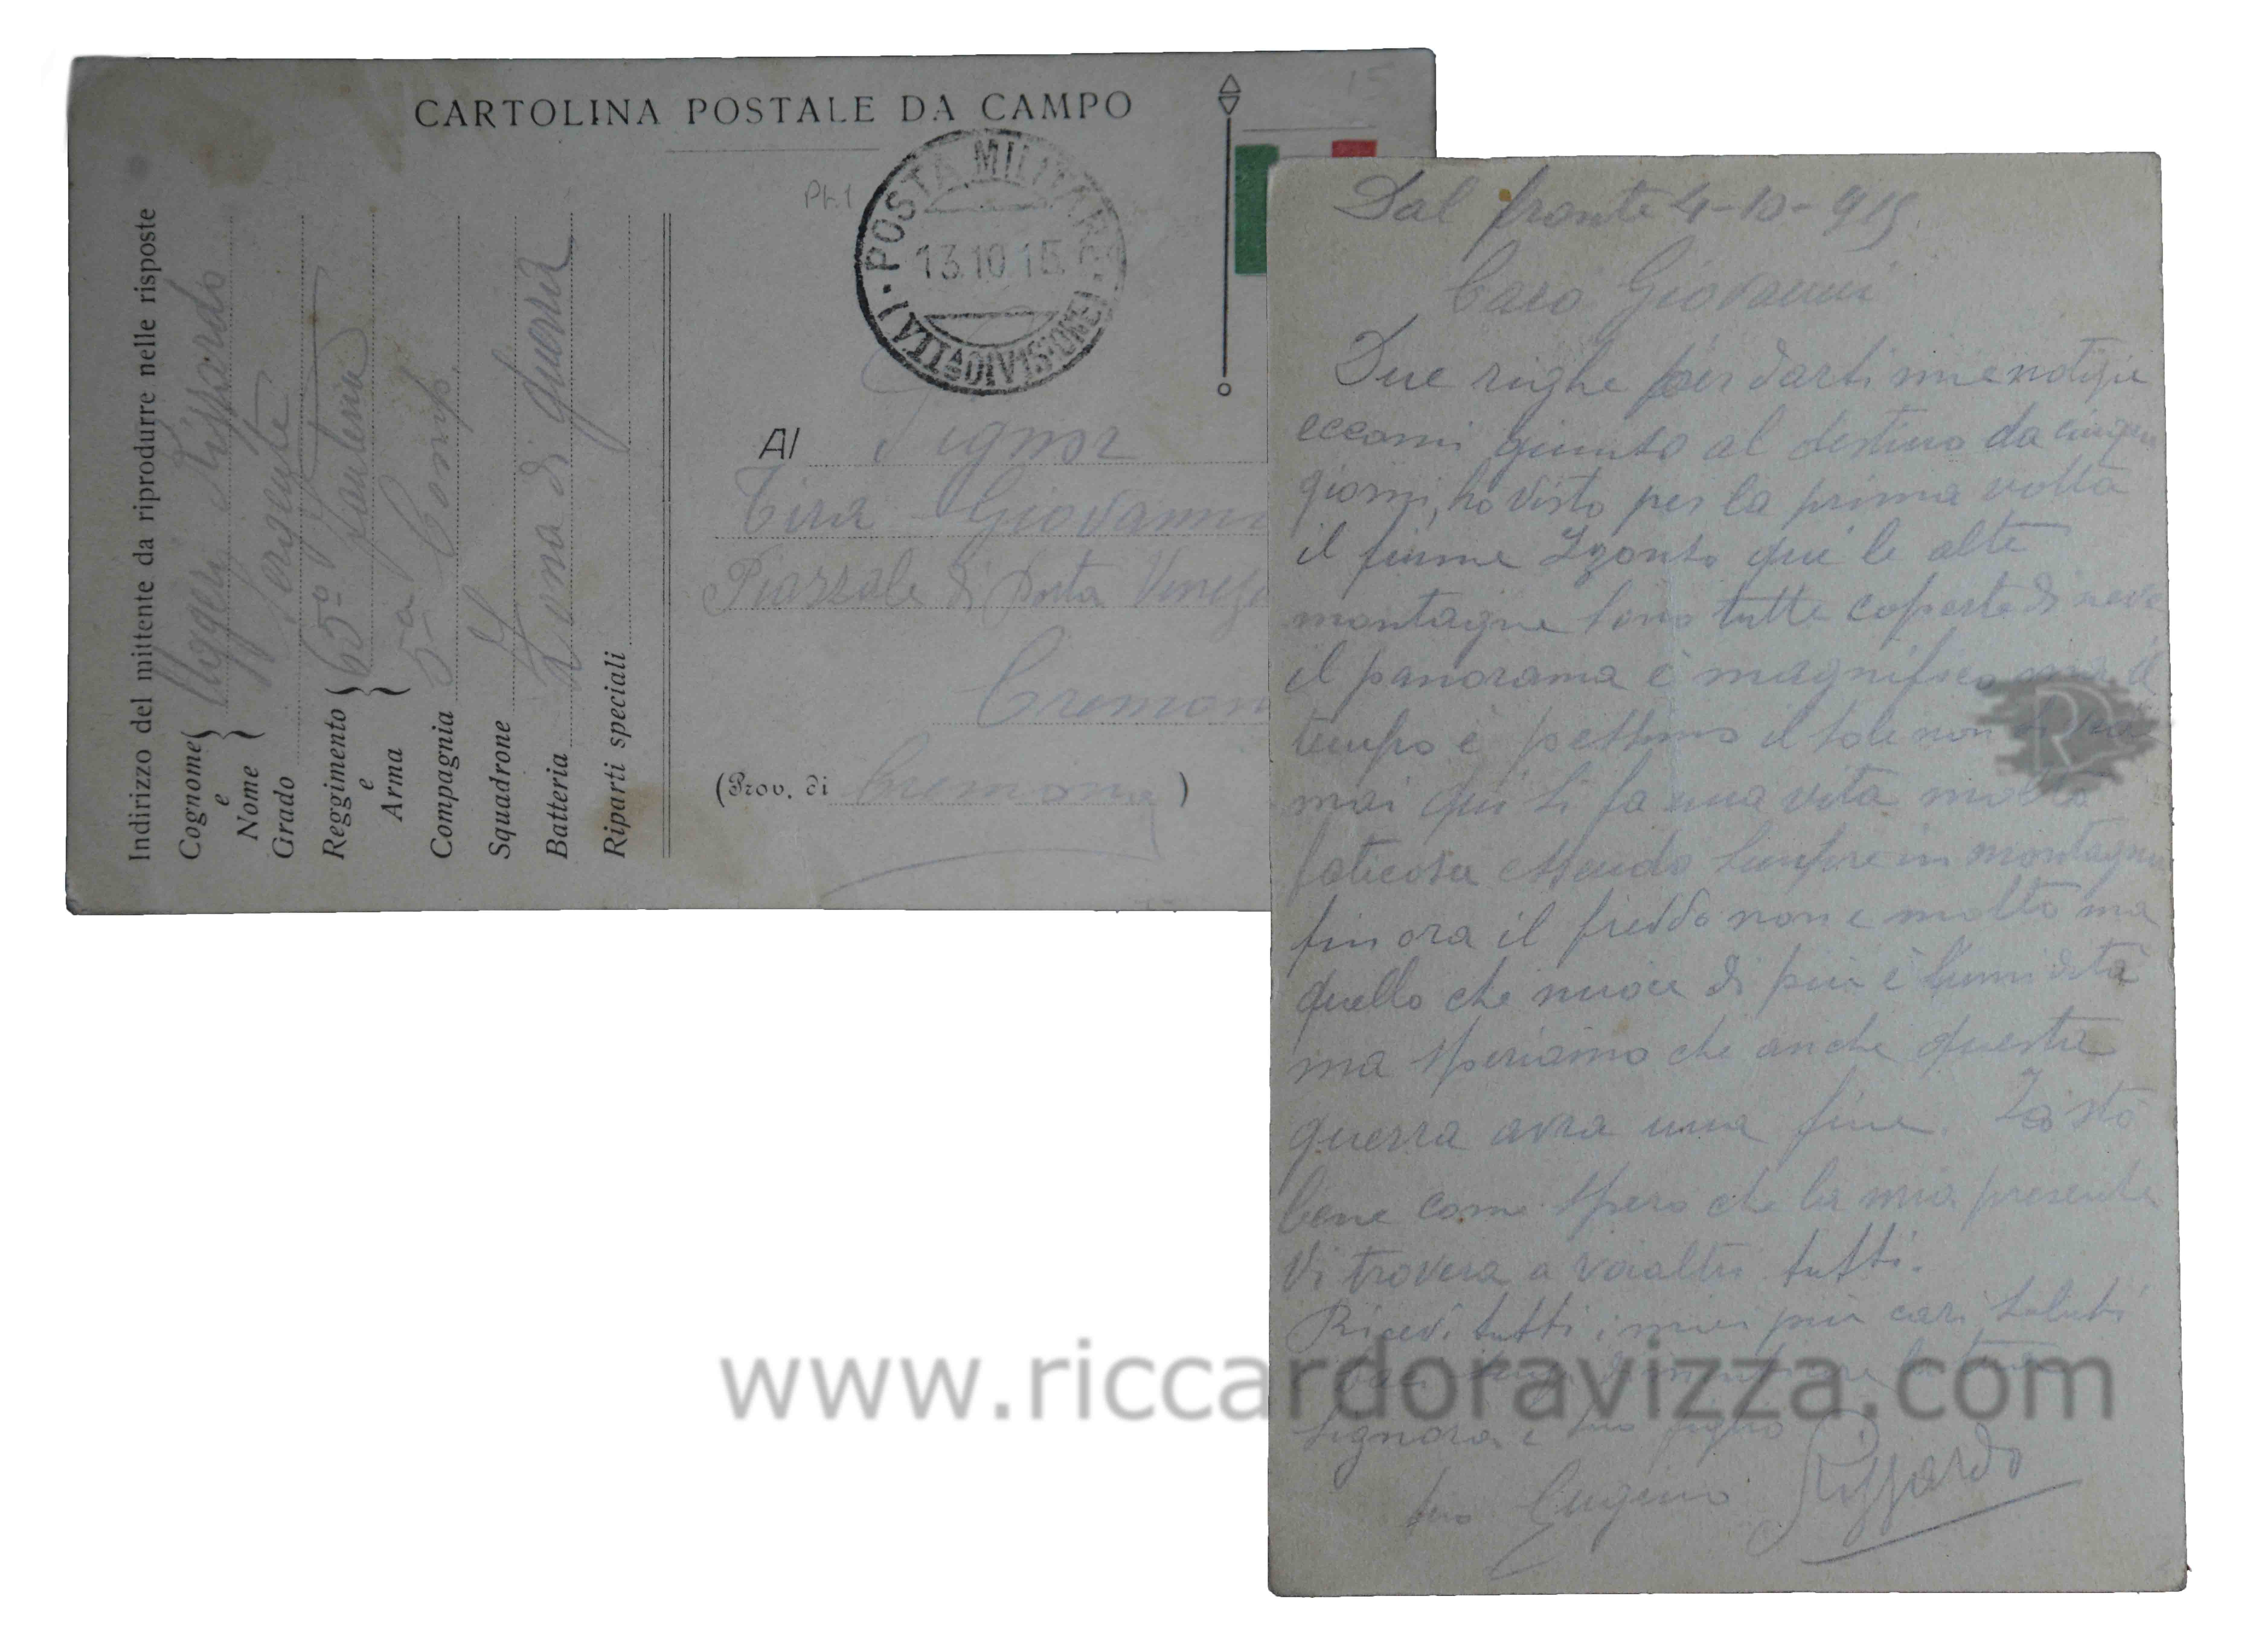 CARTOLINA POSTALE DA CAMPO
15
Ph.1
POSTA MILITARE
13.10.15.
(VIIa DIVISIONE)
Indirizzo del mittente da riprodurre nelle risposte
Cognome e Nome Rizzardo
Grado Sergente
Reggimento e Arma 65º Fanteria
Compagnia 5a Comp.
Squadrone
Batteria Zona di guerra
Riparti speciali
Al Signor
Giovanni
Piazzale di Porta Venezi
Cremon
(Prov. di Cremona)
Dal fronte 4-10-915
Caro Giovanni
Due righe per darti mie notizie
eccomi giunto al destino da cinque
giorni, ho visto per la prima volta
il fiume Izonso qui le alte
montagne sono tutte coperte di neve
il panorama è magnifico ma il
tempo è pessimo il sole non si
mai qui si fa una vita molto
faticosa essendo sempre in montagna
fin ora il freddo non e molto ma
quello che nuoce di più è l'umidità
ma speriamo che anche questa
guerra avra una fine. Io sto
bene come spero che la mia presente
vi trovera a voialtri tutti.
Ricevi tutti i miei più cari saluti
signora e tuo figlio
tuo Eugenio Rizzardo
RR
www.riccardoravizza.com